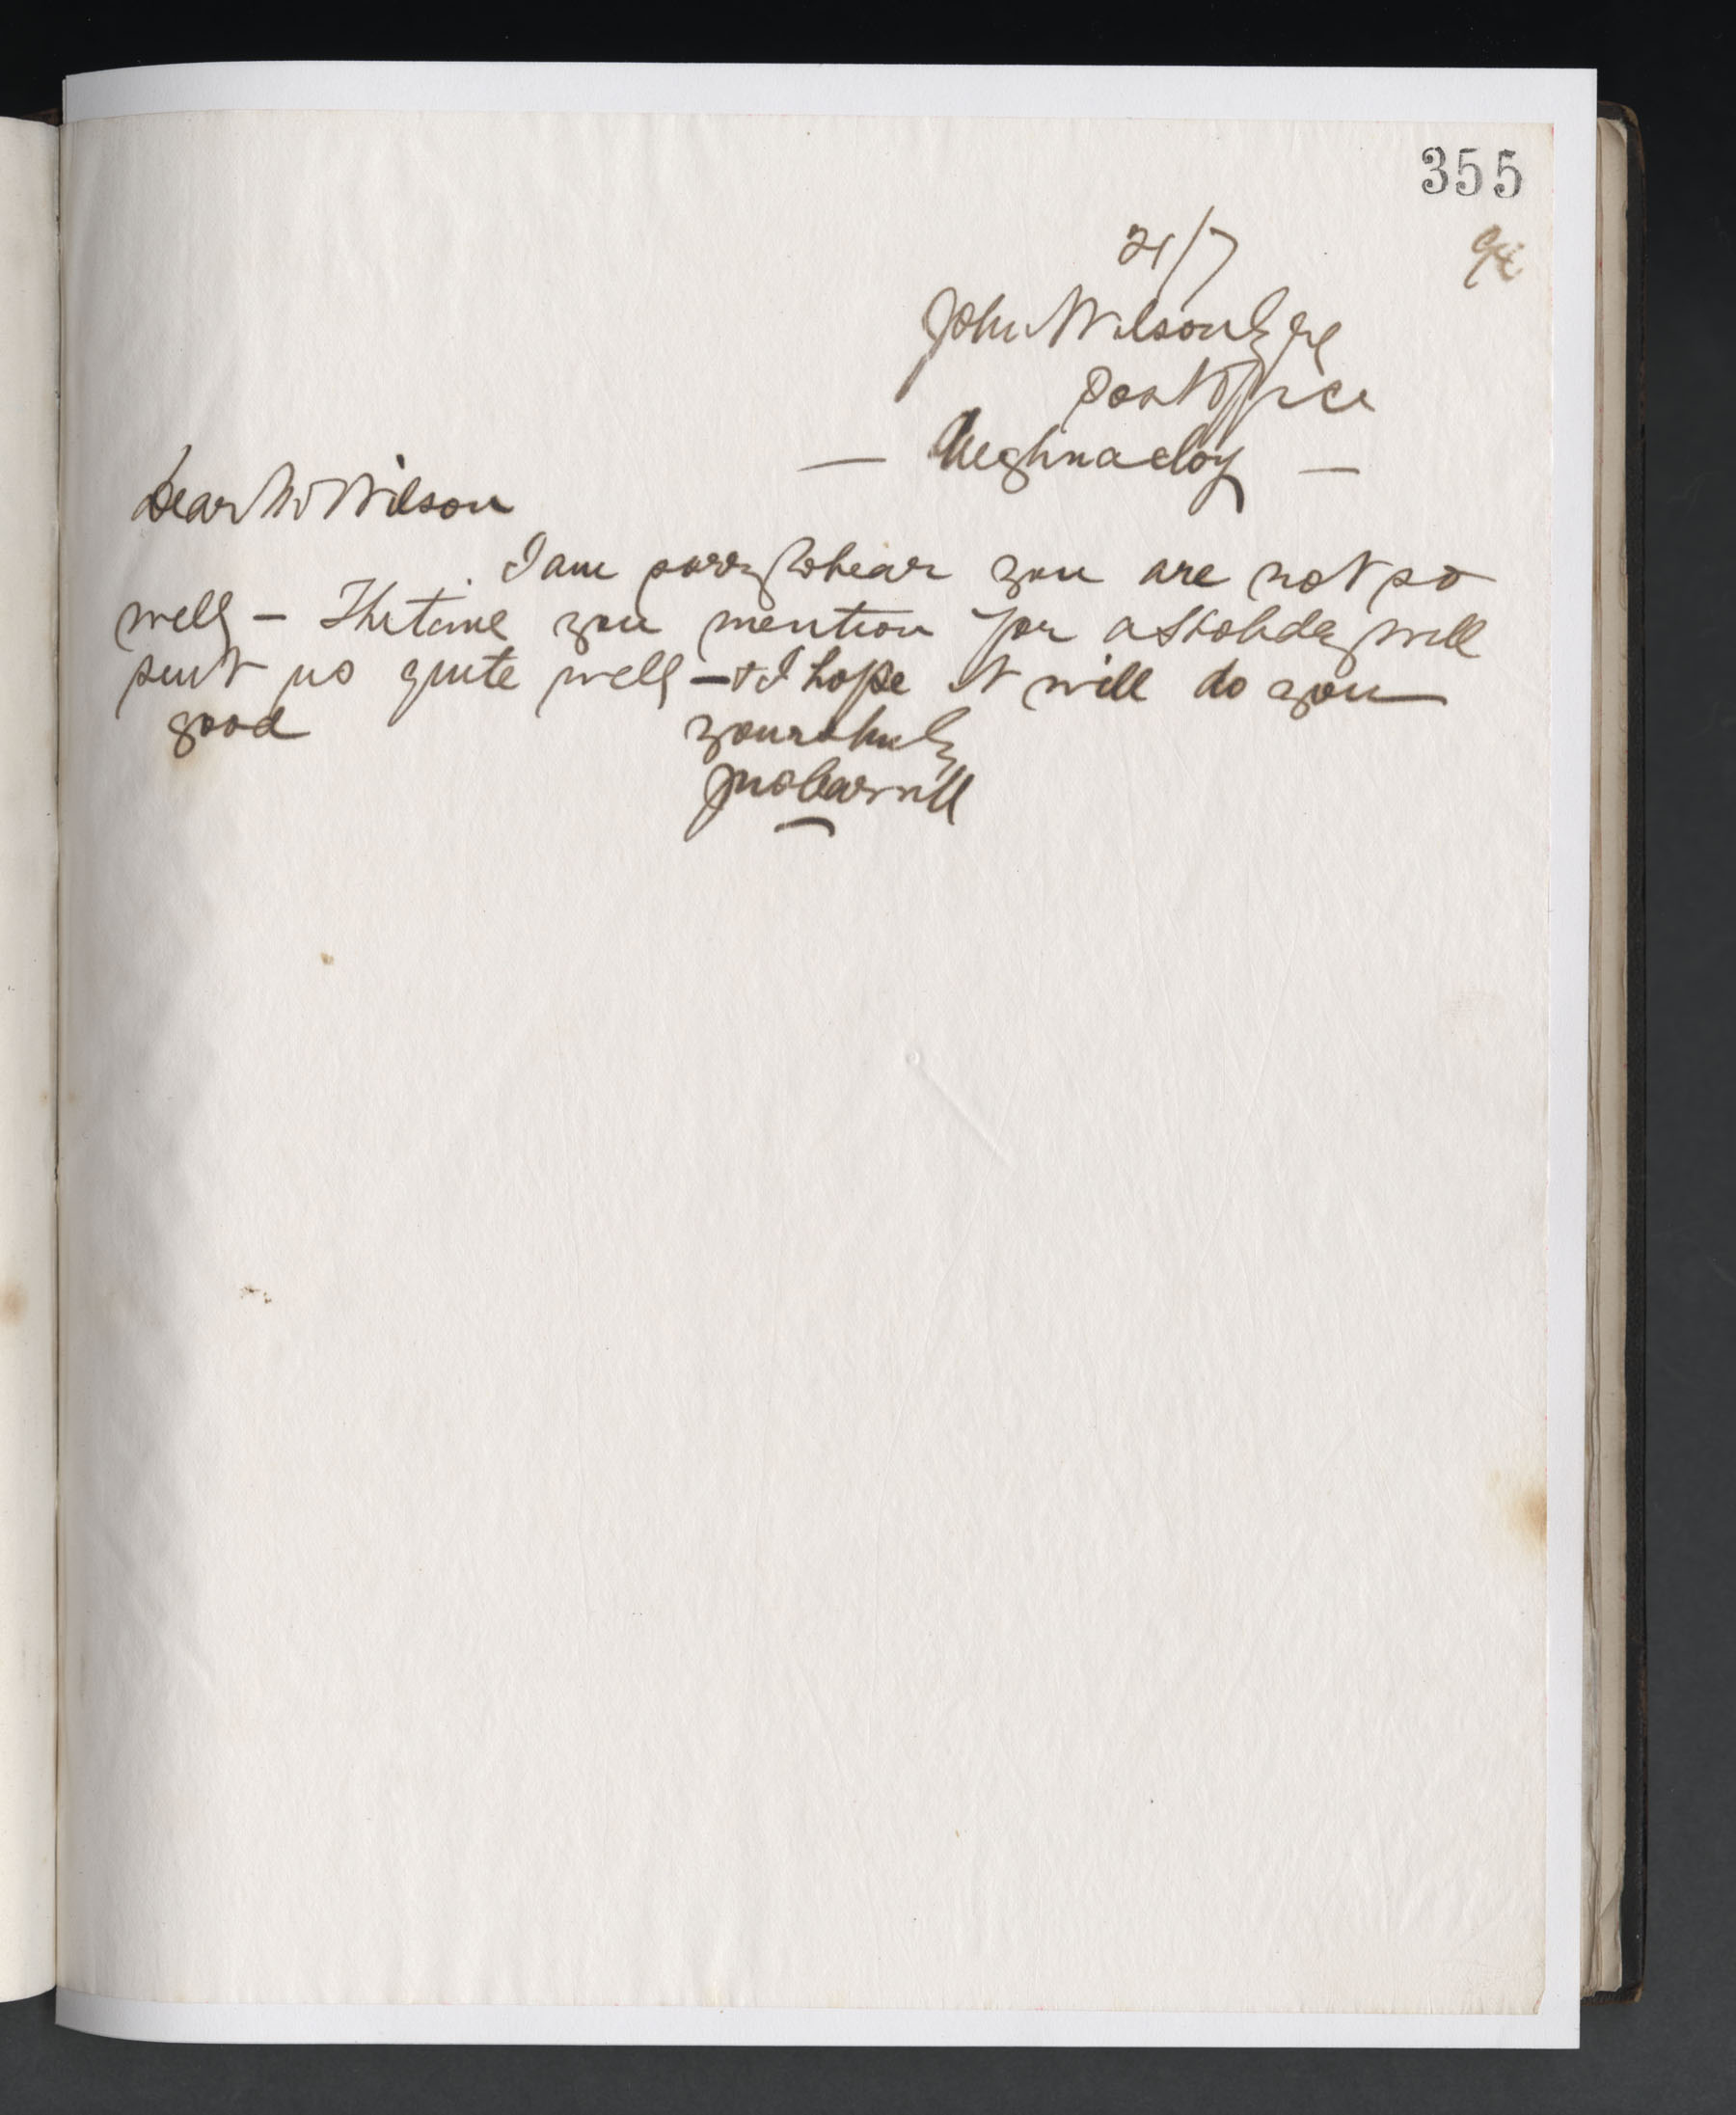 355
21/7 94
John Wilson Esqre
Post Office
— Aughnacloy —
Dear Mr Wilson
I am sorry to hear you are not so
well – The time you mention for a holiday will
suit us quite well – & I hope it will do you
good
yours truly